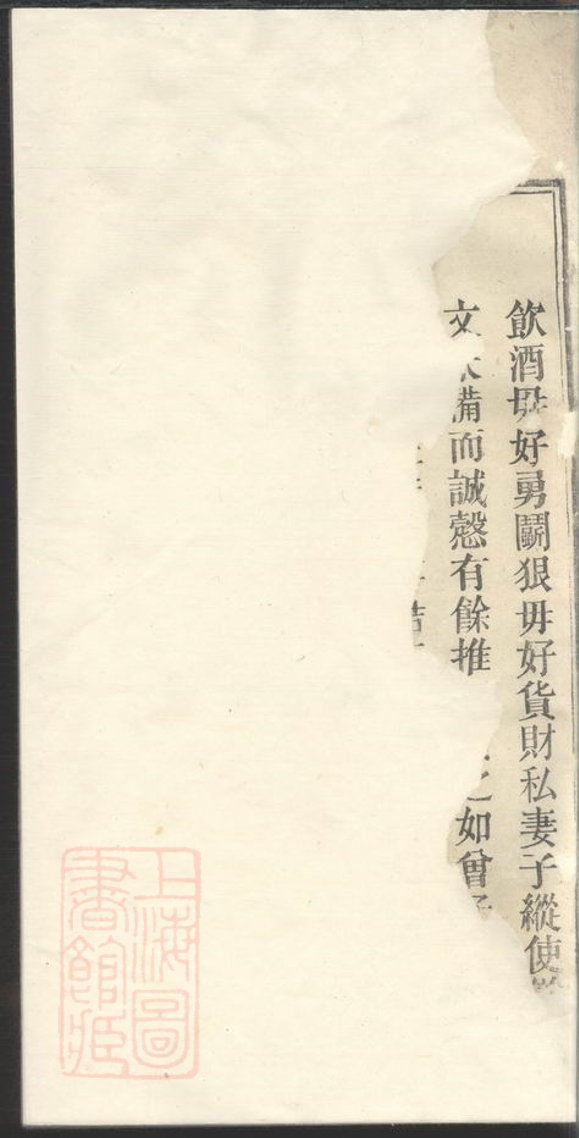 飲酒毋好勇鬭狠毋好貨財私妻子縱使
文 備而誠慤有餘推 之如曾子
上海圖書館藏